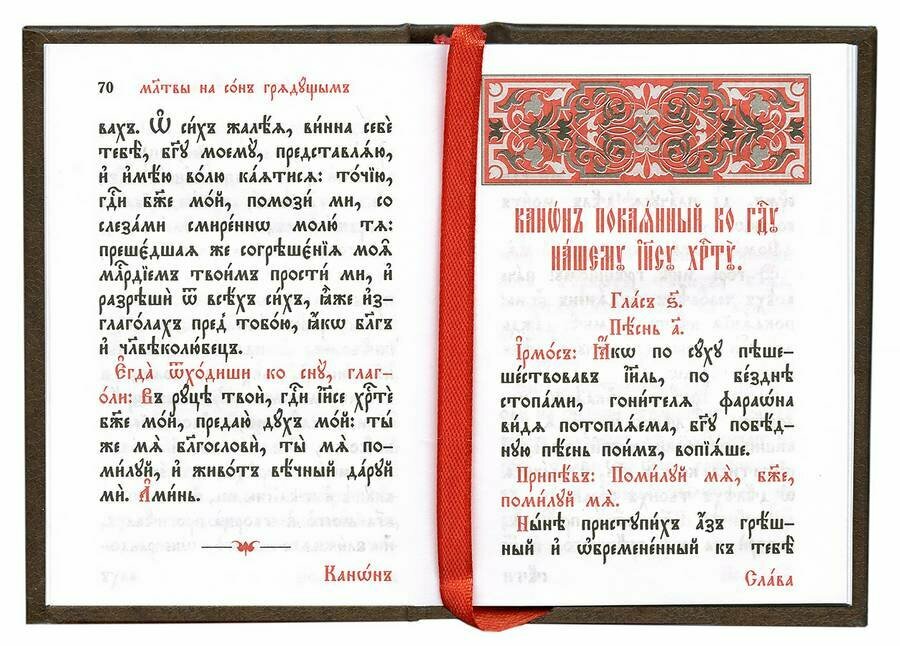 70 мл҃твы на со́нъ грѧдꙋ́щымъ
вахъ. Ѽ си́хъ жалѣ́ѧ, ви́нна себѐ
тебѣ̀, бг҃ꙋ моемꙋ̀, представлѧ́ю,
и҆ и҆мѣ́ю во́лю ка́ѧтисѧ: то́чїю,
гдⷭ҇и бж҃е мо́й, помозѝ мѝ, со
слеза́ми смире́ннѡ молю́ тѧ:
преше́дшаѧ же согрѣшє́нїѧ моѧ̑
млⷭ҇рдїемъ твои́мъ прости́ ми, и҆
разрѣшѝ ѿ всѣ́хъ си́хъ, ꙗ҆̀же и҆з-
глаго́лахъ пред̾ тобо́ю, ꙗ҆́кѡ бл҃гъ
и҆ чл҃вѣколю́бецъ.
Є҆гда̀ ѿхо́диши ко снꙋ̀, глаг-
о́ли: Въ рꙋ́цѣ твоѝ, гдⷭ҇и і҆и҃се хрⷭ҇тѐ
бж҃е мо́й, предаю̀ дꙋ́хъ мо́й: ты́
же мѧ̀ бл҃гословѝ, ты́ мѧ по-
ми́лꙋй, и҆ живо́тъ вѣ́чный да́рꙋй
мѝ. А҆ми́нь.
Кано́нъ
Кано́нъ пока́ѧнный ко гдⷭ҇ꙋ
на́шемꙋ і҆и҃сꙋ хрⷭ҇тꙋ̀.
Гла́съ ѕ҃.
Пѣ́снь а҃.
І҆рмо́съ: Ꙗ҆́кѡ по сꙋ́хꙋ пѣше-
ше́ствовавъ і҆и҃ль, по бе́зднѣ
стопа́ми, гони́телѧ фараѡ́на
ви́дѧ потоплѧ́ема, бг҃ꙋ побѣ́д-
нꙋю пѣ́снь пои́мъ, вопїѧ́ше.
Припѣ́въ: Поми́лꙋй мѧ̀, бж҃е,
поми́лꙋй мѧ̀.
Ны́нѣ пристꙋпи́хъ а҆́зъ грѣ́ш-
ный и҆ ѡ҆бремене́нный къ тебѣ̀
Сла́ва